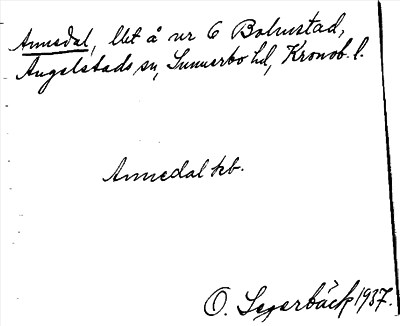 Annedal, lht å nr 6 Bolmstad,
Angelstads sn, Sunnerbo hd, Kronob. l.
Annedal kb.
O. Segerbäck 1937.